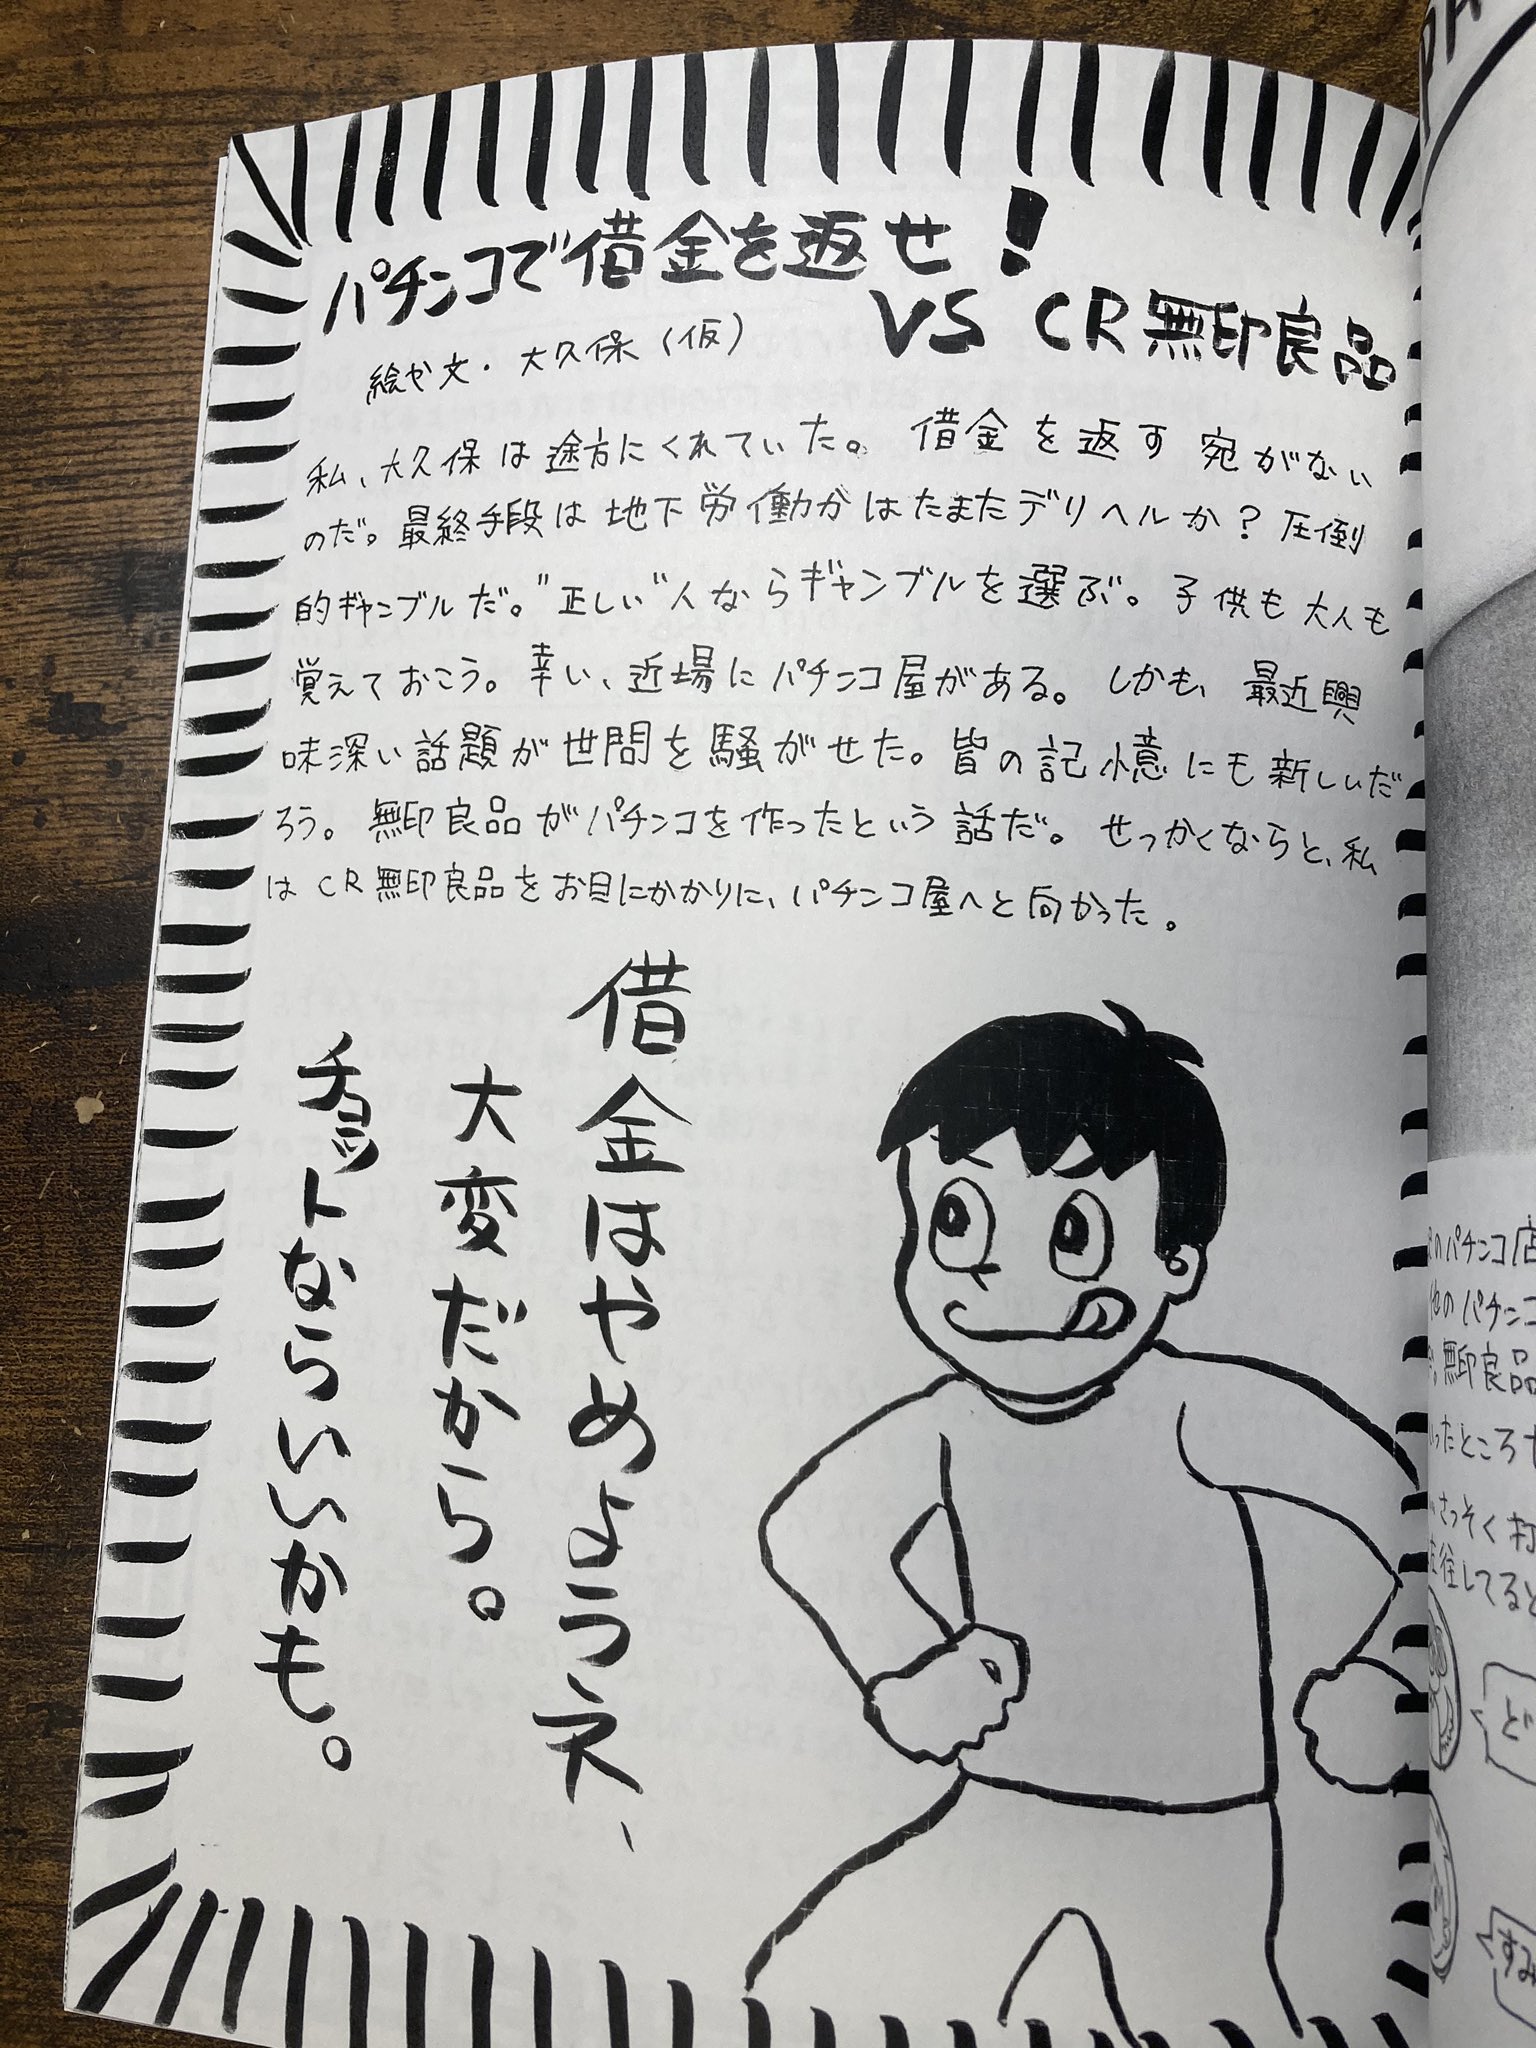 パチンコで借金を返せ!
VS CR無印良品
絵や文・大久保(仮)
私、大久保は途方にくれていた。借金を返す宛がない
のだ。最終手段は地下労働かはたまたデリヘルか?圧倒
的ギャンブルだ。"正しい"人ならギャンブルを選ぶ。子供も大人も
覚えておこう。幸い、近場にパチンコ屋がある。しかも、最近興
味深い話題が世間を騒がせた。皆の記憶にも新しいだ
ろう。無印良品がパチンコを作ったという話だ。せっかくならと、私
はCR無印良品をお目にかかりに、パチンコ屋へと向かった。
借金はやめようネ、
大変だから。
チョットならいいかも。
のパチンコ店
他のパチンコ
無印良品
ったところ
さっそく打
往してると
ど
すみ